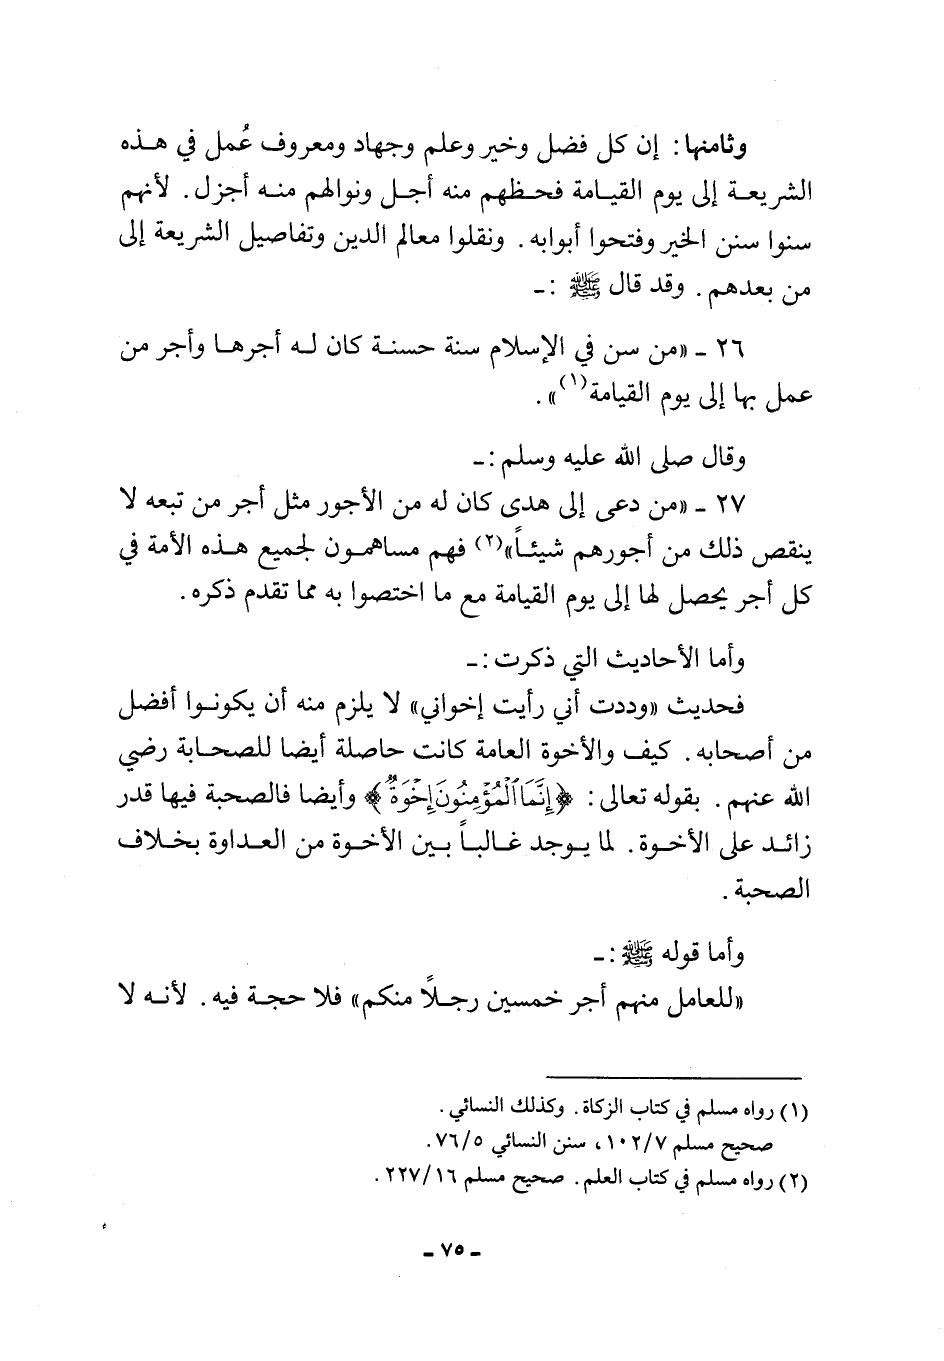 وثامنها : إن كل فضل وخير وعلم وجهاد ومعروف عُمل في هذه
الشريعة إلى يوم القيامة فحظهم منه أجل ونوالهم منه أجزل . لأنهم
سنوا سنن الخير وفتحوا أبوابه . ونقلوا معالم الدين وتفاصيل الشريعة إلى
من بعدهم . وقد قال ﷺ :ـ
٢٦ ـ «من سن في الإسلام سنة حسنة كان له أجرها وأجر من
عمل بها إلى يوم القيامة(١)» .
وقال صلى الله عليه وسلم :ـ
٢٧ ـ «من دعى إلى هدى كان له من الأجور مثل أجر من تبعه لا
ينقص ذلك من أجورهم شيئاً»(٢) فهم مساهمون لجميع هذه الأمة في
كل أجر يحصل لها إلى يوم القيامة مع ما اختصوا به مما تقدم ذكره .
وأما الأحاديث التي ذكرت :ـ
فحديث «وددت أني رأيت إخواني» لا يلزم منه أن يكونوا أفضل
من أصحابه . كيف والأخوة العامة كانت حاصلة أيضا للصحابة رضي
الله عنهم . بقوله تعالى : ﴿إِنَّمَا ٱلْمُؤْمِنُونَ إِخْوَةٌ﴾ وأيضا فالصحبة فيها قدر
زائد على الأخوة . لما يوجد غالباً بين الأخوة من العداوة بخلاف
الصحبة .
وأما قوله ﷺ :ـ
«للعامل منهم أجر خمسين رجلاً منكم» فلا حجة فيه . لأنه لا
(١) رواه مسلم في كتاب الزكاة . وكذلك النسائي .
صحيح مسلم ١٠٢/٧ ، سنن النسائي ٧٦/٥ .
(٢) رواه مسلم في كتاب العلم . صحيح مسلم ٢٢٧/١٦ .
ـ ٧٥ ـ